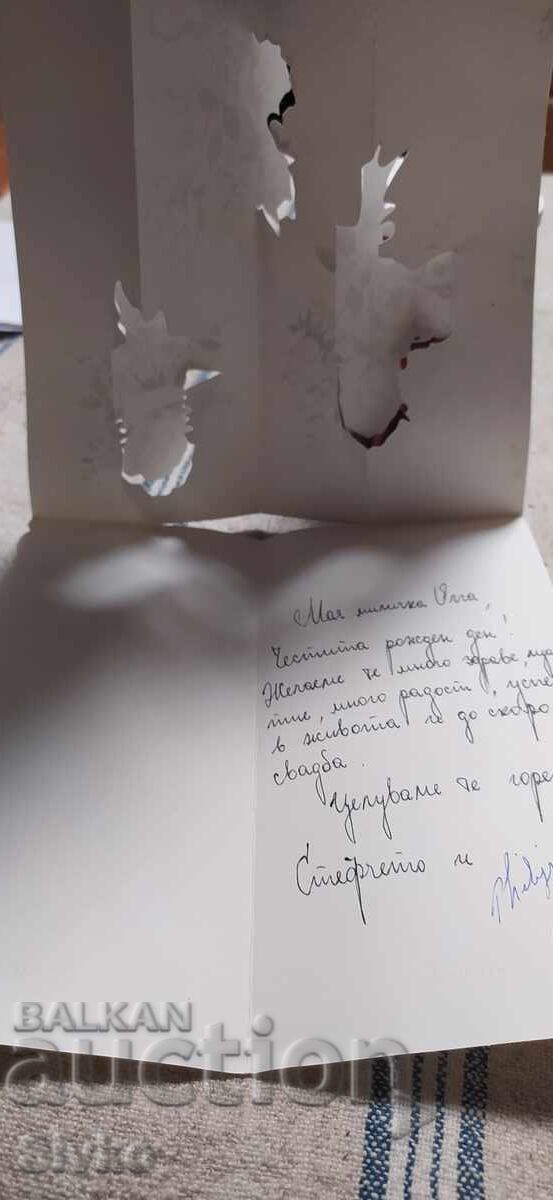 Моя миличка Оля,
Честита рожден ден!
Желаеме те много здраве,
тие, много радост, успе
в живота и до скоро
свадба.
Целуваме те горе
Стефчето и
BALKAN
auction
Slyko